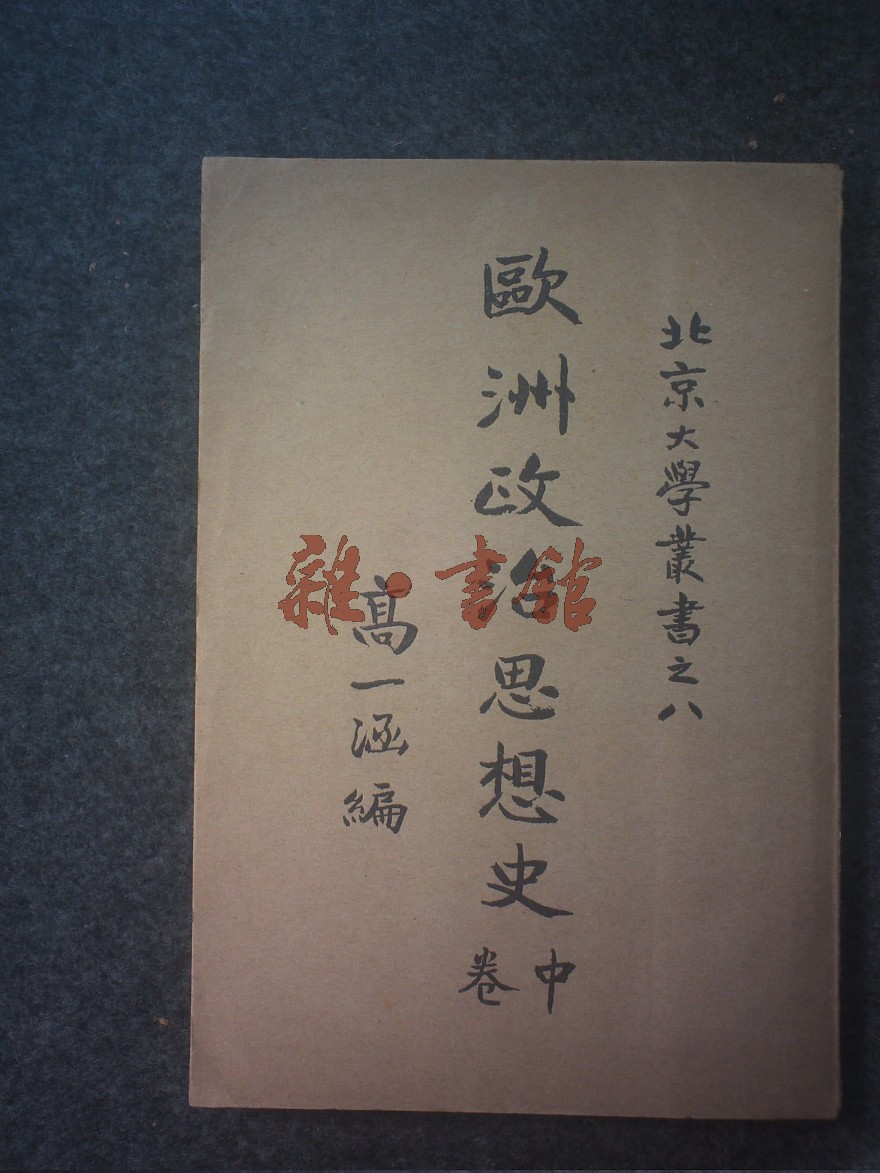 北京大學叢書之八
歐洲政治思想史
中卷
高一涵編
雜·書館